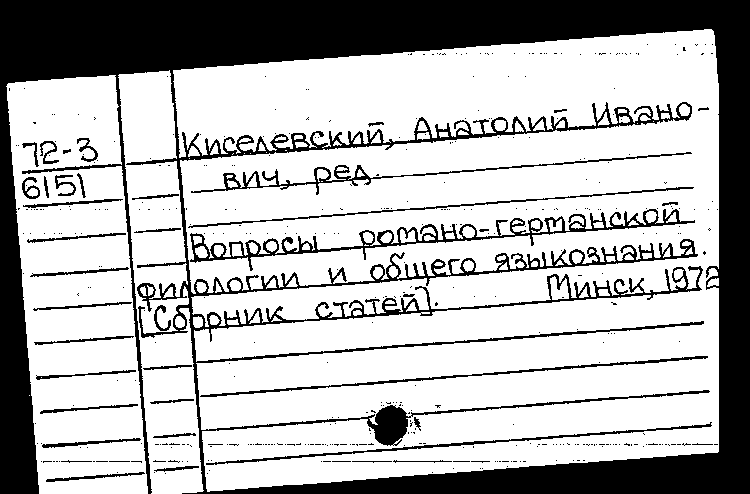 72-3
6151
Киселевский, Анатолий Ивано-
вич, ред.
Вопросы романо-германской
филологии и общего языкознания.
[Сборник статей]. Минск, 1972